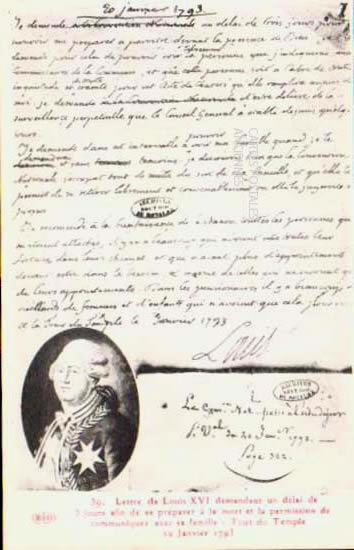 20 janvier 1793
Je demande un délai de trois jours pour
pouvoir me préparer à paroitre devant la presence de Dieu. Je
demande pour cela de pouvoir voir la personne que j'indiquerai aux
Commissaires de la Commune, et que cette personne soit à l'abri de toute
inquietude et crainte pour cet acte de charité qu'elle remplira aupres de
moi. je demande d'etre delivré de la
surveillance perpetuelle que le Conseil General a etablie depuis quelques
jours.
Je demande dans cet intervalle à pouvoir voir ma famille quand je le
demanderai et sans temoins. je desirerois bien que la Convention
Nationale s'occupat tout de suite du sort de ma famille et qu'elle lui
permit de se retirer librement et convenablement ou elle le jugeroit à
propos.
Je recommande à la bienfaisance de la Nation toutes les personnes qui
m'etoient attachées. il y en a beaucoup qui avoient mis toutes leur
fortune dans leurs charges et qui n'ayant plus d'appointements
doivent etre dans le besoin et meme de celles qui ne vivoient que
de leurs appointements. Dans les pensionnaires il y a beaucoup de
vieillards de femmes et d'enfants qui n'avoient que cela pour vivre
à la Tour du Temple le 20 janvier 1793
Louis
Page 322.
39. Lettre de Louis XVI demandant un délai de
3 jours afin de se préparer à la mort et la permission de
communiquer avec sa famille - Tour du Temple
20 Janvier 1793